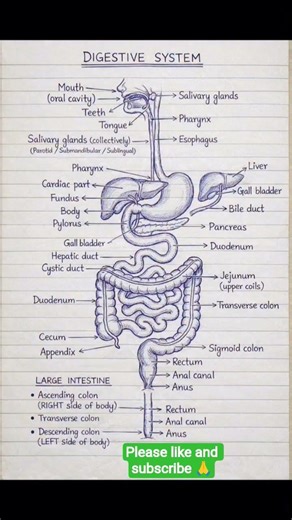 DIGESTIVE SYSTEM
Mouth
(oral cavity)
Teeth
Tongue
Salivary glands (collectively)
(Parotid / Submandibular / Sublingual)
Pharynx
Cardiac part
Fundus
Body
Pylorus
Gall bladder
Hepatic duct
Cystic duct
Duodenum
Cecum
Appendix
Salivary glands
Pharynx
Esophagus
Liver
Gall bladder
Bile duct
Pancreas
Duodenum
Jejunum
(upper coils)
Transverse colon
Sigmoid colon
Rectum
Anal canal
Anus
LARGE INTESTINE
• Ascending colon
(RIGHT side of body)
• Transverse colon
• Descending colon
(LEFT side of body)
Rectum
Anal canal
Anus
Please like and
subscribe 🙏